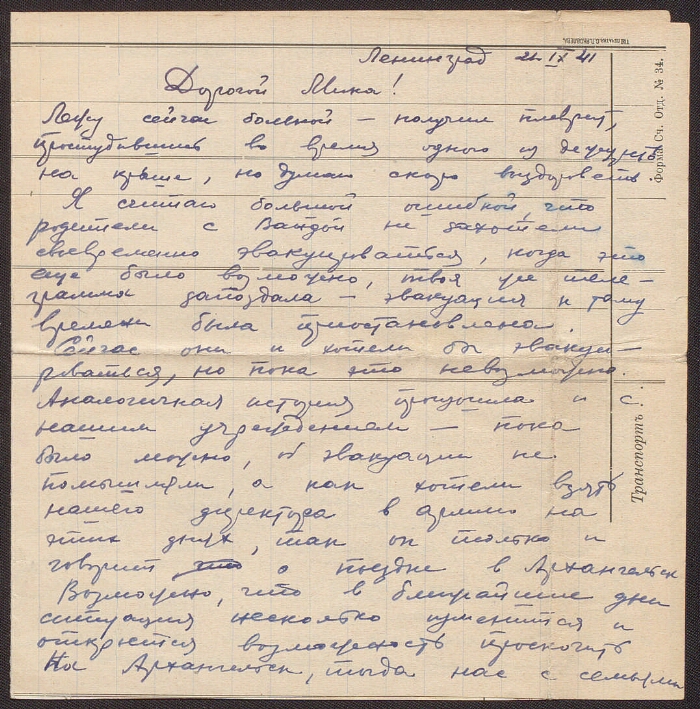 Ленинград 21 IX 41
Дорогой Мика!
Лежу сейчас больной — получил плеврит,
простудившись во время одного из дежурств
на крыше, но думаю скоро выздороветь.
Я считаю большой ошибкой, что
родители с Вандой не захотели
своевременно эвакуироваться, когда это
еще было возможно, твоя же теле-
грамма запоздала — эвакуация к тому
времени была приостановлена.
Сейчас они и хотели бы эвакуи-
роваться, но пока это невозможно.
Аналогичная история произошла и с
нашим учреждением — пока
было можно, об эвакуации не
помышляли, а как хотели взять
нашего директора в армию на
этих днях, так он только и
говорит о поездке в Архангельск
Возможно, что в ближайшие дни
ситуация несколько изменится и
откроется возможность проскочить
на Архангельск, тогда нас с семьями
Форма Сч. Отд. № 34.
Транспортъ